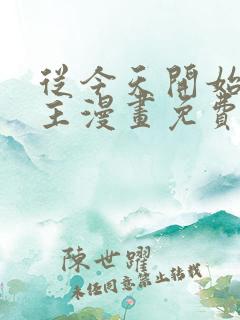 從今天開始
王漫畫免費
陳世躍
未經同意禁止轉載